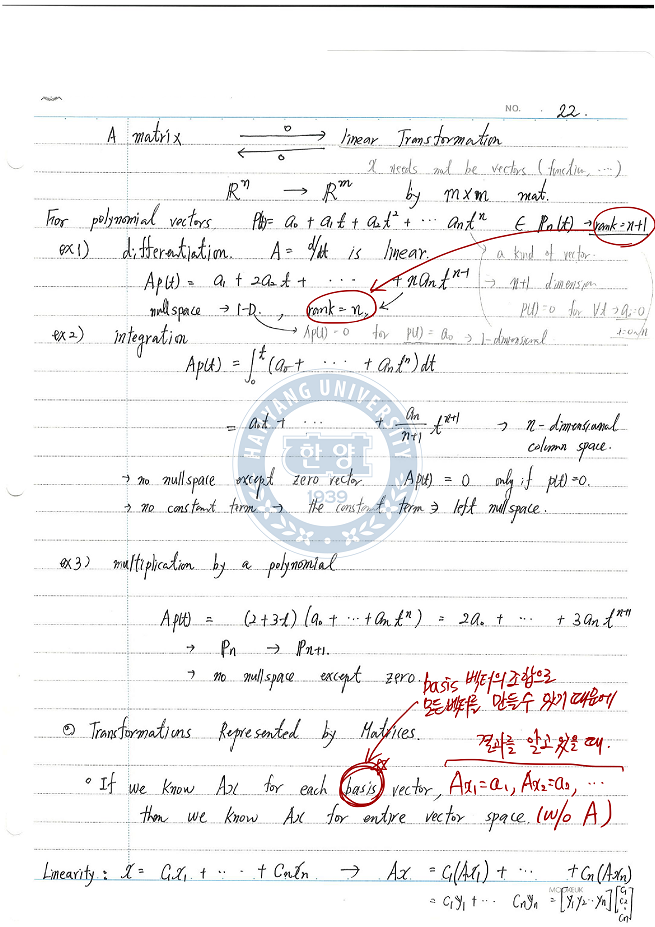 NO. 22.
A matrix ⟶ ⟵ linear Transformation
x needs not be vectors (function, ⋯)
ℝⁿ → ℝᵐ by m×m mat.
For polynomial vectors P(t) = a₀ + a₁t + a₂t² + ⋯ aₙtⁿ ∈ ℙₙ(t) → rank = n+1
ex1) differentiation. A = d/dt is linear. a kind of vector.
Ap(t) = a₁ + 2a₂t + ⋯ + naₙtⁿ⁻¹ → n+1 dimension
nullspace → 1-D., rank = n, p(t)=0 for ∀t → aᵢ=0
Ap(t) = 0 for p(t) = a₀ → 1-dimensional
ex2) integration
Ap(t) = ∫₀ᵗ (a₀ + ⋯ + aₙtⁿ) dt
= a₀t + ⋯ + aₙ/(n+1) tⁿ⁺¹ → n-dimensional
column space.
→ no nullspace except zero vector Ap(t) = 0 only if p(t)=0.
→ no constant term → the constant term ∋ left nullspace.
HANYANG UNIVERSITY
한양
1939
ex3) multiplication by a polynomial
Ap(t) = (2+3t)(a₀ + ⋯ + aₙtⁿ) = 2a₀ + ⋯ + 3aₙtⁿ⁺¹
→ ℙₙ → ℙₙ₊₁.
→ no nullspace except zero.
basis 벡터의 조합으로
모든 벡터를 만들 수 있기 때문에
⊙ Transformations Represented by Matrices.
결과를 알고 있을 때.
∘ If we know Ax for each basis vector, Ax₁=a₁, Ax₂=a₂, ⋯
then we know Ax for entire vector space. (w/o A)
Linearity: x = c₁x₁ + ⋯ + cₙxₙ → Ax = c₁(Ax₁) + ⋯ + cₙ(Axₙ)
= c₁y₁ + ⋯ cₙyₙ = [y₁ y₂ ⋯ yₙ][c₁ c₂ ⋮ cₙ]